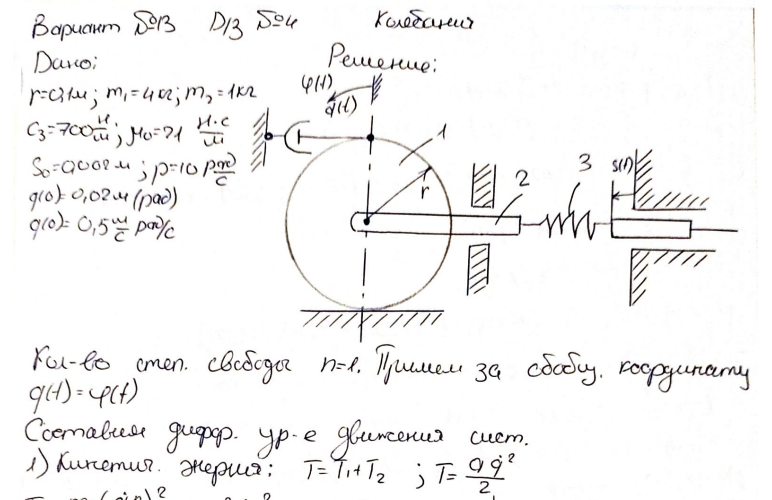 Вариант №13 Д/З №4 Колебания
Дано:
Решение:
r=0,1м; m₁=4кг; m₂=1кг
φ(t)
q(t)
C₃=700 Н/м; μ₀=21 Н·с/м
S₀=0,002м; p=10 рад/с
q(0)=0,02м (рад)
q̇(0)=0,5 м/с рад/с
1
r
2
3
s(t)
Кол-во степ. свободы n=1. Примем за обобщ. координату
q(t)=φ(t)
Составим дифф. ур-е движения сист.
1) Кинетич. энергия: T=T₁+T₂ ; T=aq̇²/2